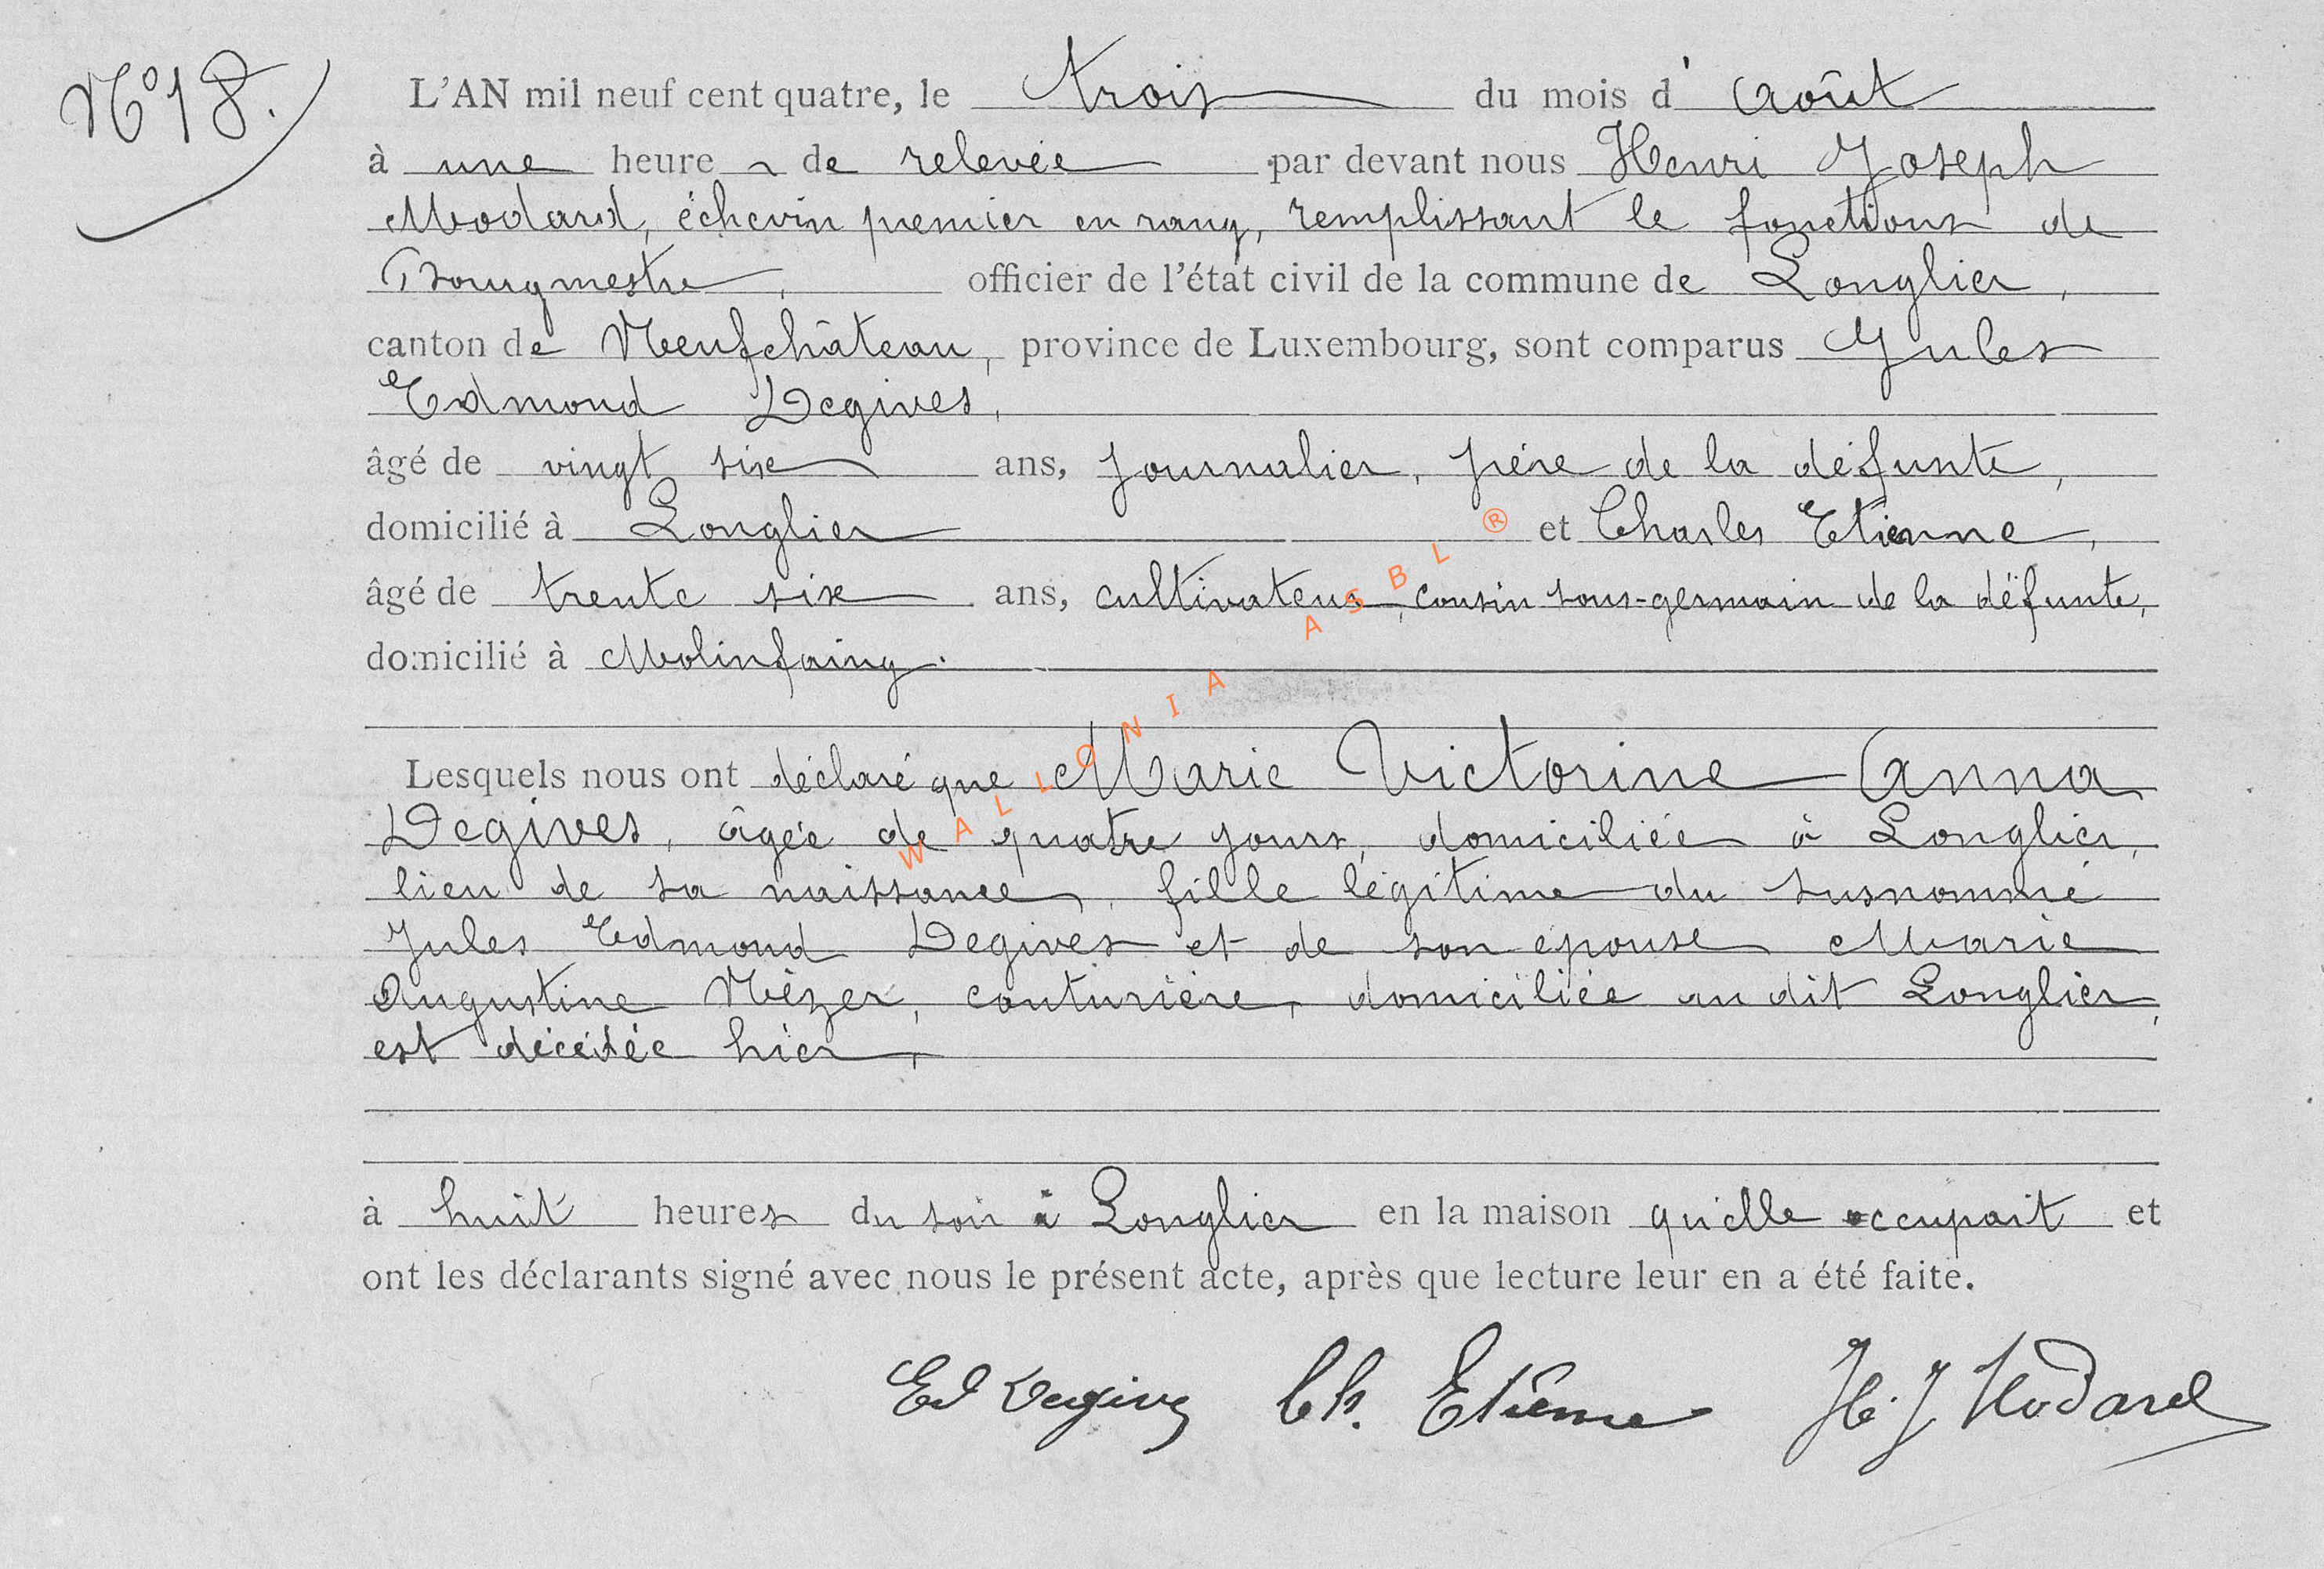 N° 18.
L'AN mil neuf cent quatre, le trois du mois d'Août
à une heure de relevée par devant nous Henri Joseph
Modard, échevin premier en rang, remplissant le fonctions de
Bourgmestre, officier de l'état civil de la commune de Longlier,
canton de Neufchâteau, province de Luxembourg, sont comparus Jules
Edmond Degives,
âgé de vingt six ans, journalier, père de la défunte,
domicilié à Longlier et Charles Etienne,
âgé de trente six ans, cultivateur, cousin sous-germain de la défunte,
domicilié à Molinfaing.
Lesquels nous ont déclaré que Marie Victorine Anna
Degives, âgée de quatre jours, domiciliée à Longlier,
lieu de sa naissance, fille légitime du susnommé
Jules Edmond Degives et de son épouse Marie
Augustine Nézer, couturière, domiciliée au dit Longlier,
est décédée hier,
à huit heures du soir à Longlier en la maison qu'elle occupait et
ont les déclarants signé avec nous le présent acte, après que lecture leur en a été faite.
Ed Degives Ch. Etienne H. J Modard
WALLONIA ASBL ®